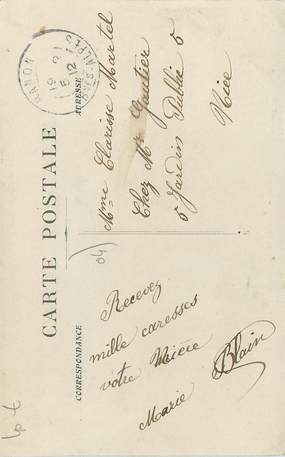 CARTE POSTALE
CORRESPONDANCE
ADRESSE
BANON
Bses-ALPES
Recevez
mille caresses
votre Mière
Marie Blain
Mme Clarisse Martel
Chez Mr Gautier
5 Jardin Public 5
Nice
04)